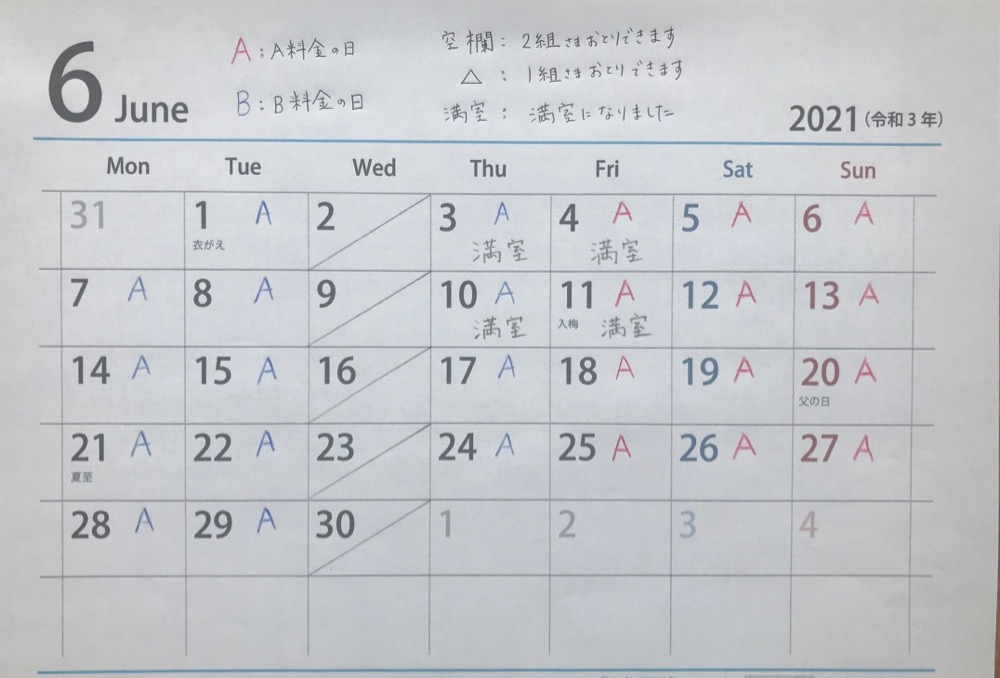 6 June
A:A料金の日
B:B料金の日
空欄: 2組さまおとりできます
△: 1組さまおとりできます
満室: 満室になりました
2021(令和3年)
Mon Tue Wed Thu Fri Sat Sun
31 1 A 2 3 A 4 A 5 A 6 A
衣がえ 満室 満室
7 A 8 A 9 10 A 11 A 12 A 13 A
満室 入梅 満室
14 A 15 A 16 17 A 18 A 19 A 20 A
父の日
21 A 22 A 23 24 A 25 A 26 A 27 A
夏至
28 A 29 A 30 1 2 3 4